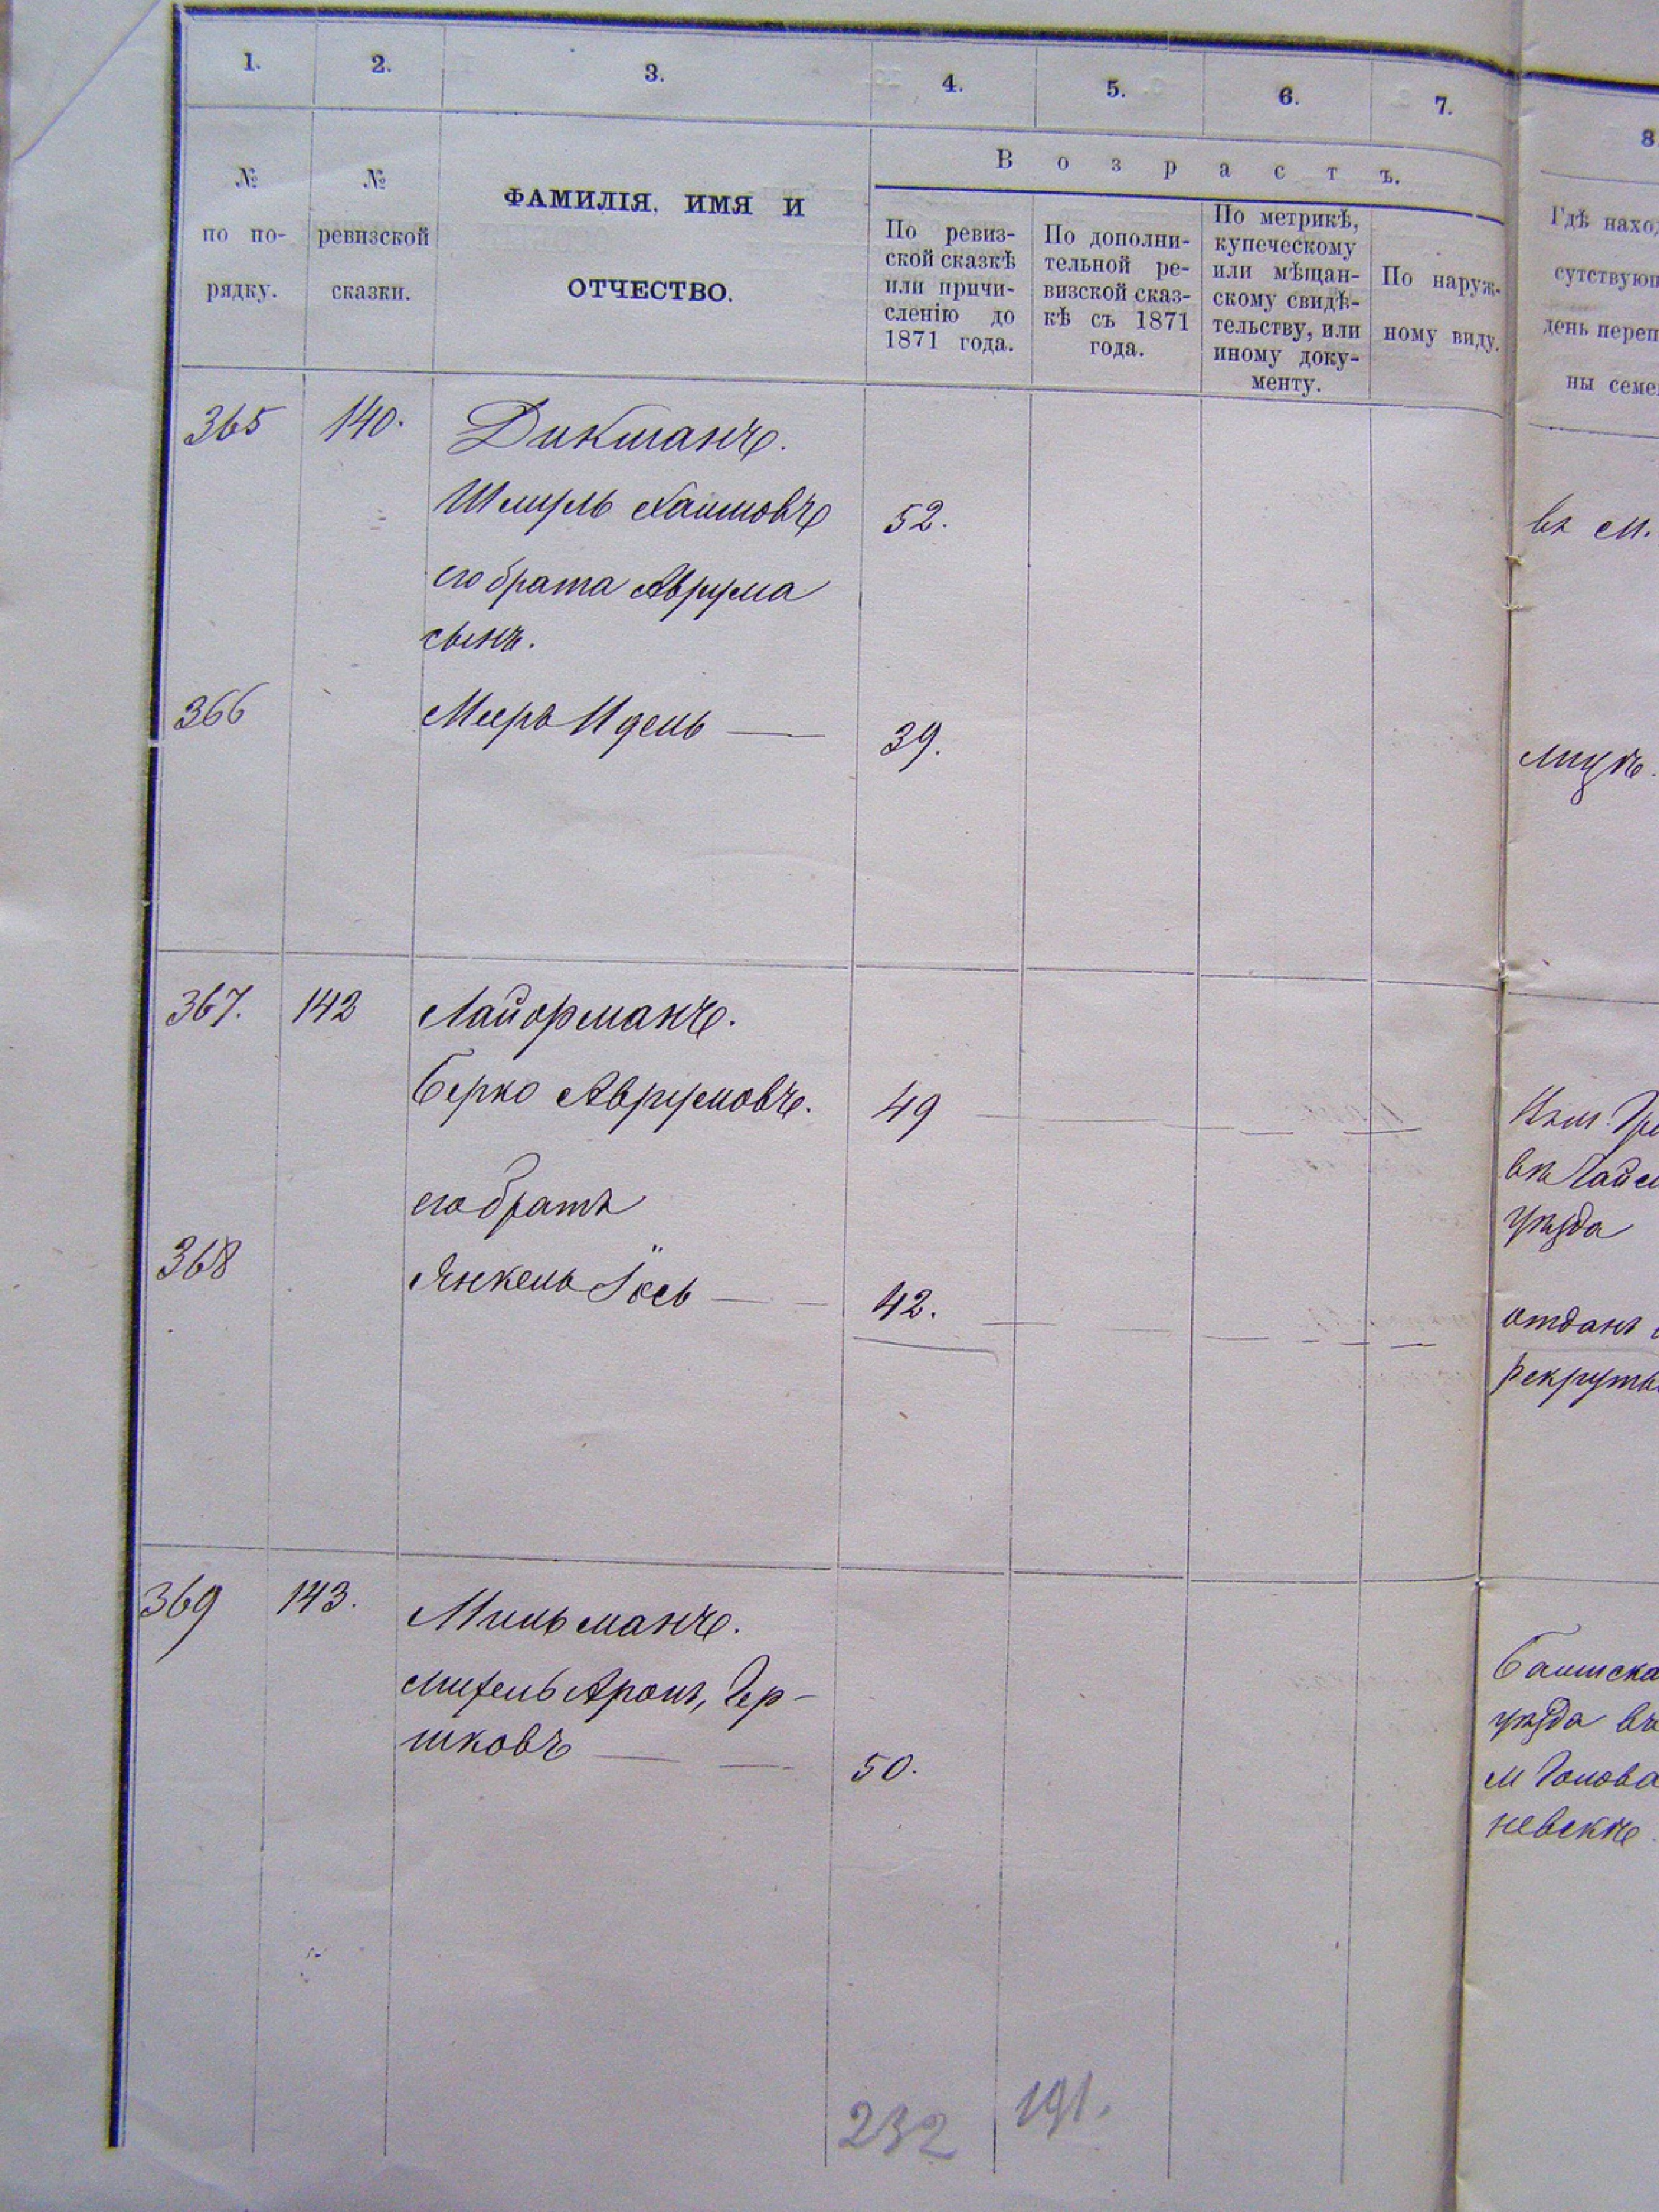 1. 2. 3. 4. 5. 6. 7. 8
№ по по-рядку.
№ ревизской сказки.
ФАМИЛІЯ, ИМЯ И
ОТЧЕСТВО.
Возрастъ.
По ревиз-
ской сказкѣ
или причи-
сленію до
1871 года.
По дополни-
тельной ре-
визской сказ-
кѣ съ 1871
года.
По метрикѣ,
купеческому
или мѣщан-
скому свидѣ-
тельству, или
иному доку-
менту.
По наруж-
ному виду.
Гдѣ наход
сутствующ
день переп
ны семе
365 140. Дикманъ.
Шмуль Хаимовъ 52. въ м.
его брата Аврума
сынъ.
366 Мееръ Идель — 39.
367. 142 Лайорманъ.
Берко Аврумовъ. 49
въ Гайс
уѣзда
его братъ
368 Янкель Іось — — 42. отданъ
рекруты
369 143. Мильманъ.
Михель Аронъ, Гер-
шковъ — — 50.
Балтска
уѣзда въ
м Голова
невскѣ
232 191.